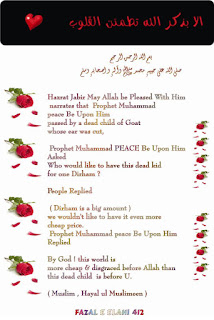 الا بذكر الله تطمئن القلوب
Hazrat Jabir May Allah be Pleased With Him
narrates that Prophet Muhammad
peace Be Upon Him
passed by a dead child of Goat
whose ear was cut,
Prophet Muhammad PEACE Be Upon Him
Asked
Who would like to have this dead kid
for one Dirham ?
People Replied
( Dirham is a big amount )
we wouldn't like to have it even more
cheap price.
Prophet Muhammad peace Be Upon Him
Replied
By God ! this world is
more cheap & disgraced before Allah than
this dead child is before U.
( Muslim , Hayal ul Muslimeen )
FAZAL E ELAHI 412